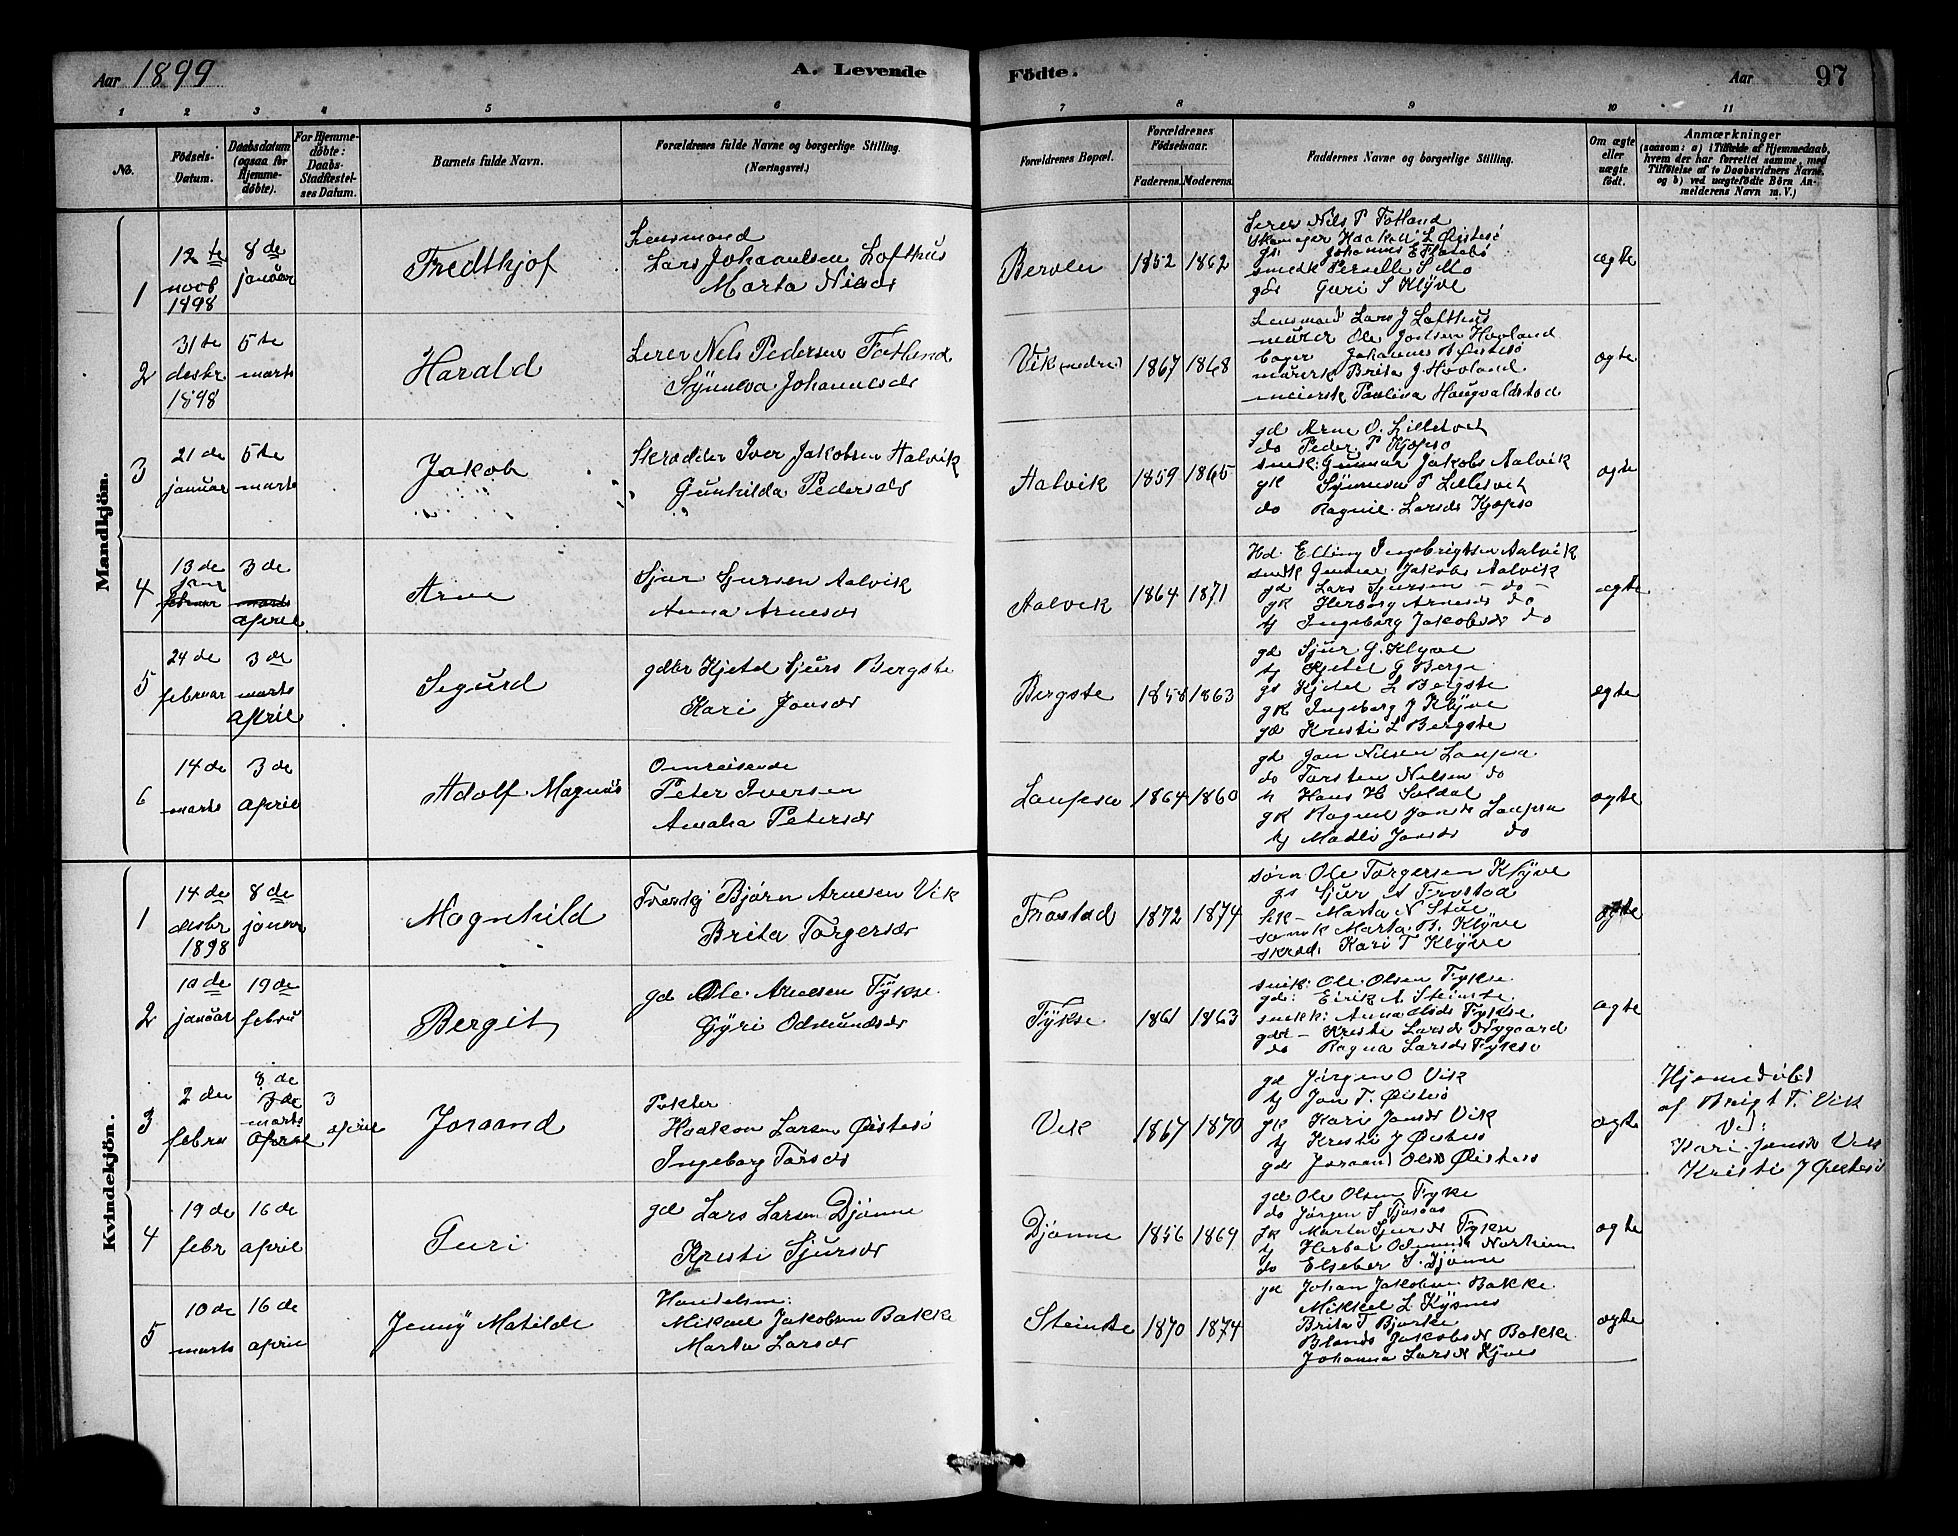 Aar 1899
A. Levende
Födte.
Aar
97
1 2 3 4 5 6 7 8 9 10 11
No.
Födsels-Datum.
Daabsdatum (ogsaa for Hjemmedöbte).
For Hjemmedöbte: Daabs-Stadfestelses Datum.
Barnets fulde Navn.
Forældrenes fulde Navne og borgerlige Stilling.
(Næringsvei.)
Forældrenes Bopæl.
Forældrenes Födselsaar.
Faderens. Moderens.
Faddernes Navne og borgerlige Stilling.
Om ægte eller uægte födt.
Anmærkninger
(saasom: a) i Tilfælde af Hjemmedaab, hvem der har forrettet samme, med Tilföielse af to Daabsvidners Navne, og b) ved uægtefödte Börn Anmelderens Navn m. V.)
Mandkjön.
1
12te novb 1898
8de januar
Fredthjof
Lensmand
Lars Johannesen Lofthus
Marta Nilsdr
1852 1862
Lerer Nils P Fatland
Skomager Haakon L Øistesö
gs Johannes E Flatebö
smedk Pernille S Mo
gdr Guri S Klyve
ægte
2
31te desbr 1898
5te marts
Harald
Lerer Nels Pedersen Fatland
Synneva Johannesdr
Vik (nedre)
1867 1868
Lensmand Lars J Lofthus
murer Ole Jonsen Hovland
bager Johannes A Øistesö
murerk Brita J Hovland
meiersk Paulina Haugvaldstad
egte
3
21de januar
5te marts
Jakob
Skrædder Iver Jakobsen Aalvik
Gunhilda Pedersdr
Aalvik
1859 1865
gd Arne O. Lilletvet
do Peder P Kjepso
snik: Gunnar Jakobs Aalvik
gk Synneva P Lilletvet
do Ragnil Larsdr Kjepso
egte
4
13de jane februar
3de marts april
Arne
Sjur Sjursen Aalvik
Anna Arnesdr
Aalvik
1864 1871
Hd. Elling Ingebrigtsen Aalvik
snik Gunnar Jakobs Aalvik
gd Lars Sjursen - do -
gk Herborg Arnesdr do
tj Ingeborg Jakobsdr do
egte
5
24de februar
3de marts april
Segurd
gdbr Kjetel Sjurs Bergste
Kari Jonsdr
Bergste
1858 1863
gd Sjur G. Klyve
tj Kjetel G Berge
gs Kjetel L Bergste
gk Ingeborg J Klyve
gd Kristi L Bergste
egte
6
14de marts
3de april
Adolf Magnus
Omreisende
Peter Iversen
Amalia Petersdr
Laupsa
1864 1860
gd Jon Nilsen Laupsa
do Torsten Nilsen do
Hans H Soldal
gk Ragnil Jonsdr Laupsa
tj Madli Jonsdr do
egte
Kvindekjön.
1
14de desbr 1898
8de januar
Magnhild
Bjørn Arnesen Vik
Brita Torgersdr
Frostad
1872 1874
Ole Torgersen Klyve
gs Sjur A Frostad
Marta N Stue
Marta B. Klyve
skred. Kari T Klyve
egte
2
10de januar
19de febru
Bergit
gd Ole Arnesen Tykse
Gyri Odmundsdr
Fykse
1861 1863
snik: Ole Olsen Fykse
gd: Eirik A Steinste
snikk: Anna Olsdr Fykse
gdr - Kristi Larsdr Nygaard
do Ragna Larsdr Fykse
egte
3
2den febru
8de 3de marts april
3 april
Joraand
Pakter
Haakon Larsen Øistesö
Ingeborg Torsdr
Vik
1867 1870
gd Jörgen O Vik
tj Jon T. Øistesö
gk Kari Jonsdr Vik
tj Kristi J Øistesö
gd Joraand Olsdr Øistesö
egte
Hjemmedöbt
af Brigt T. Vik
Ved:
Kari Jonsdr Vik
Kristi J Øistesö
4
19de febr
16de april
Guri
gd Lars Larsen Djönne
Kristi Sjursdr
Djönne
1856 1869
gd Ole Olsen Fyke
do Jørgen S
Marta Sjursdr Fykse
tj Herbor Odmundsdr Norheim
do Elseber S. Djönne
egte
5
10de marts
16de april
Jenny Matilde
Handelsm:
Mikael Jakobsen Bakke
Marta Larsdr
Steinste
1870 1874
gd Johan Jakobsen Bakke
Mikkel L Kysnes
Brita T Bjørke
Jakobsdr Bakke
Johanna Larsdr
egte